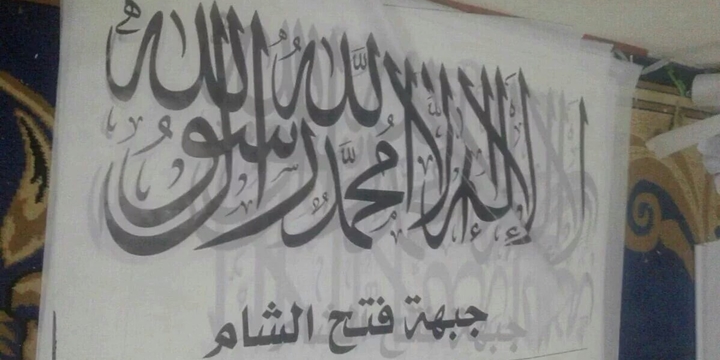 لا إله إلا الله محمد رسول الله
جبهة فتح الشام